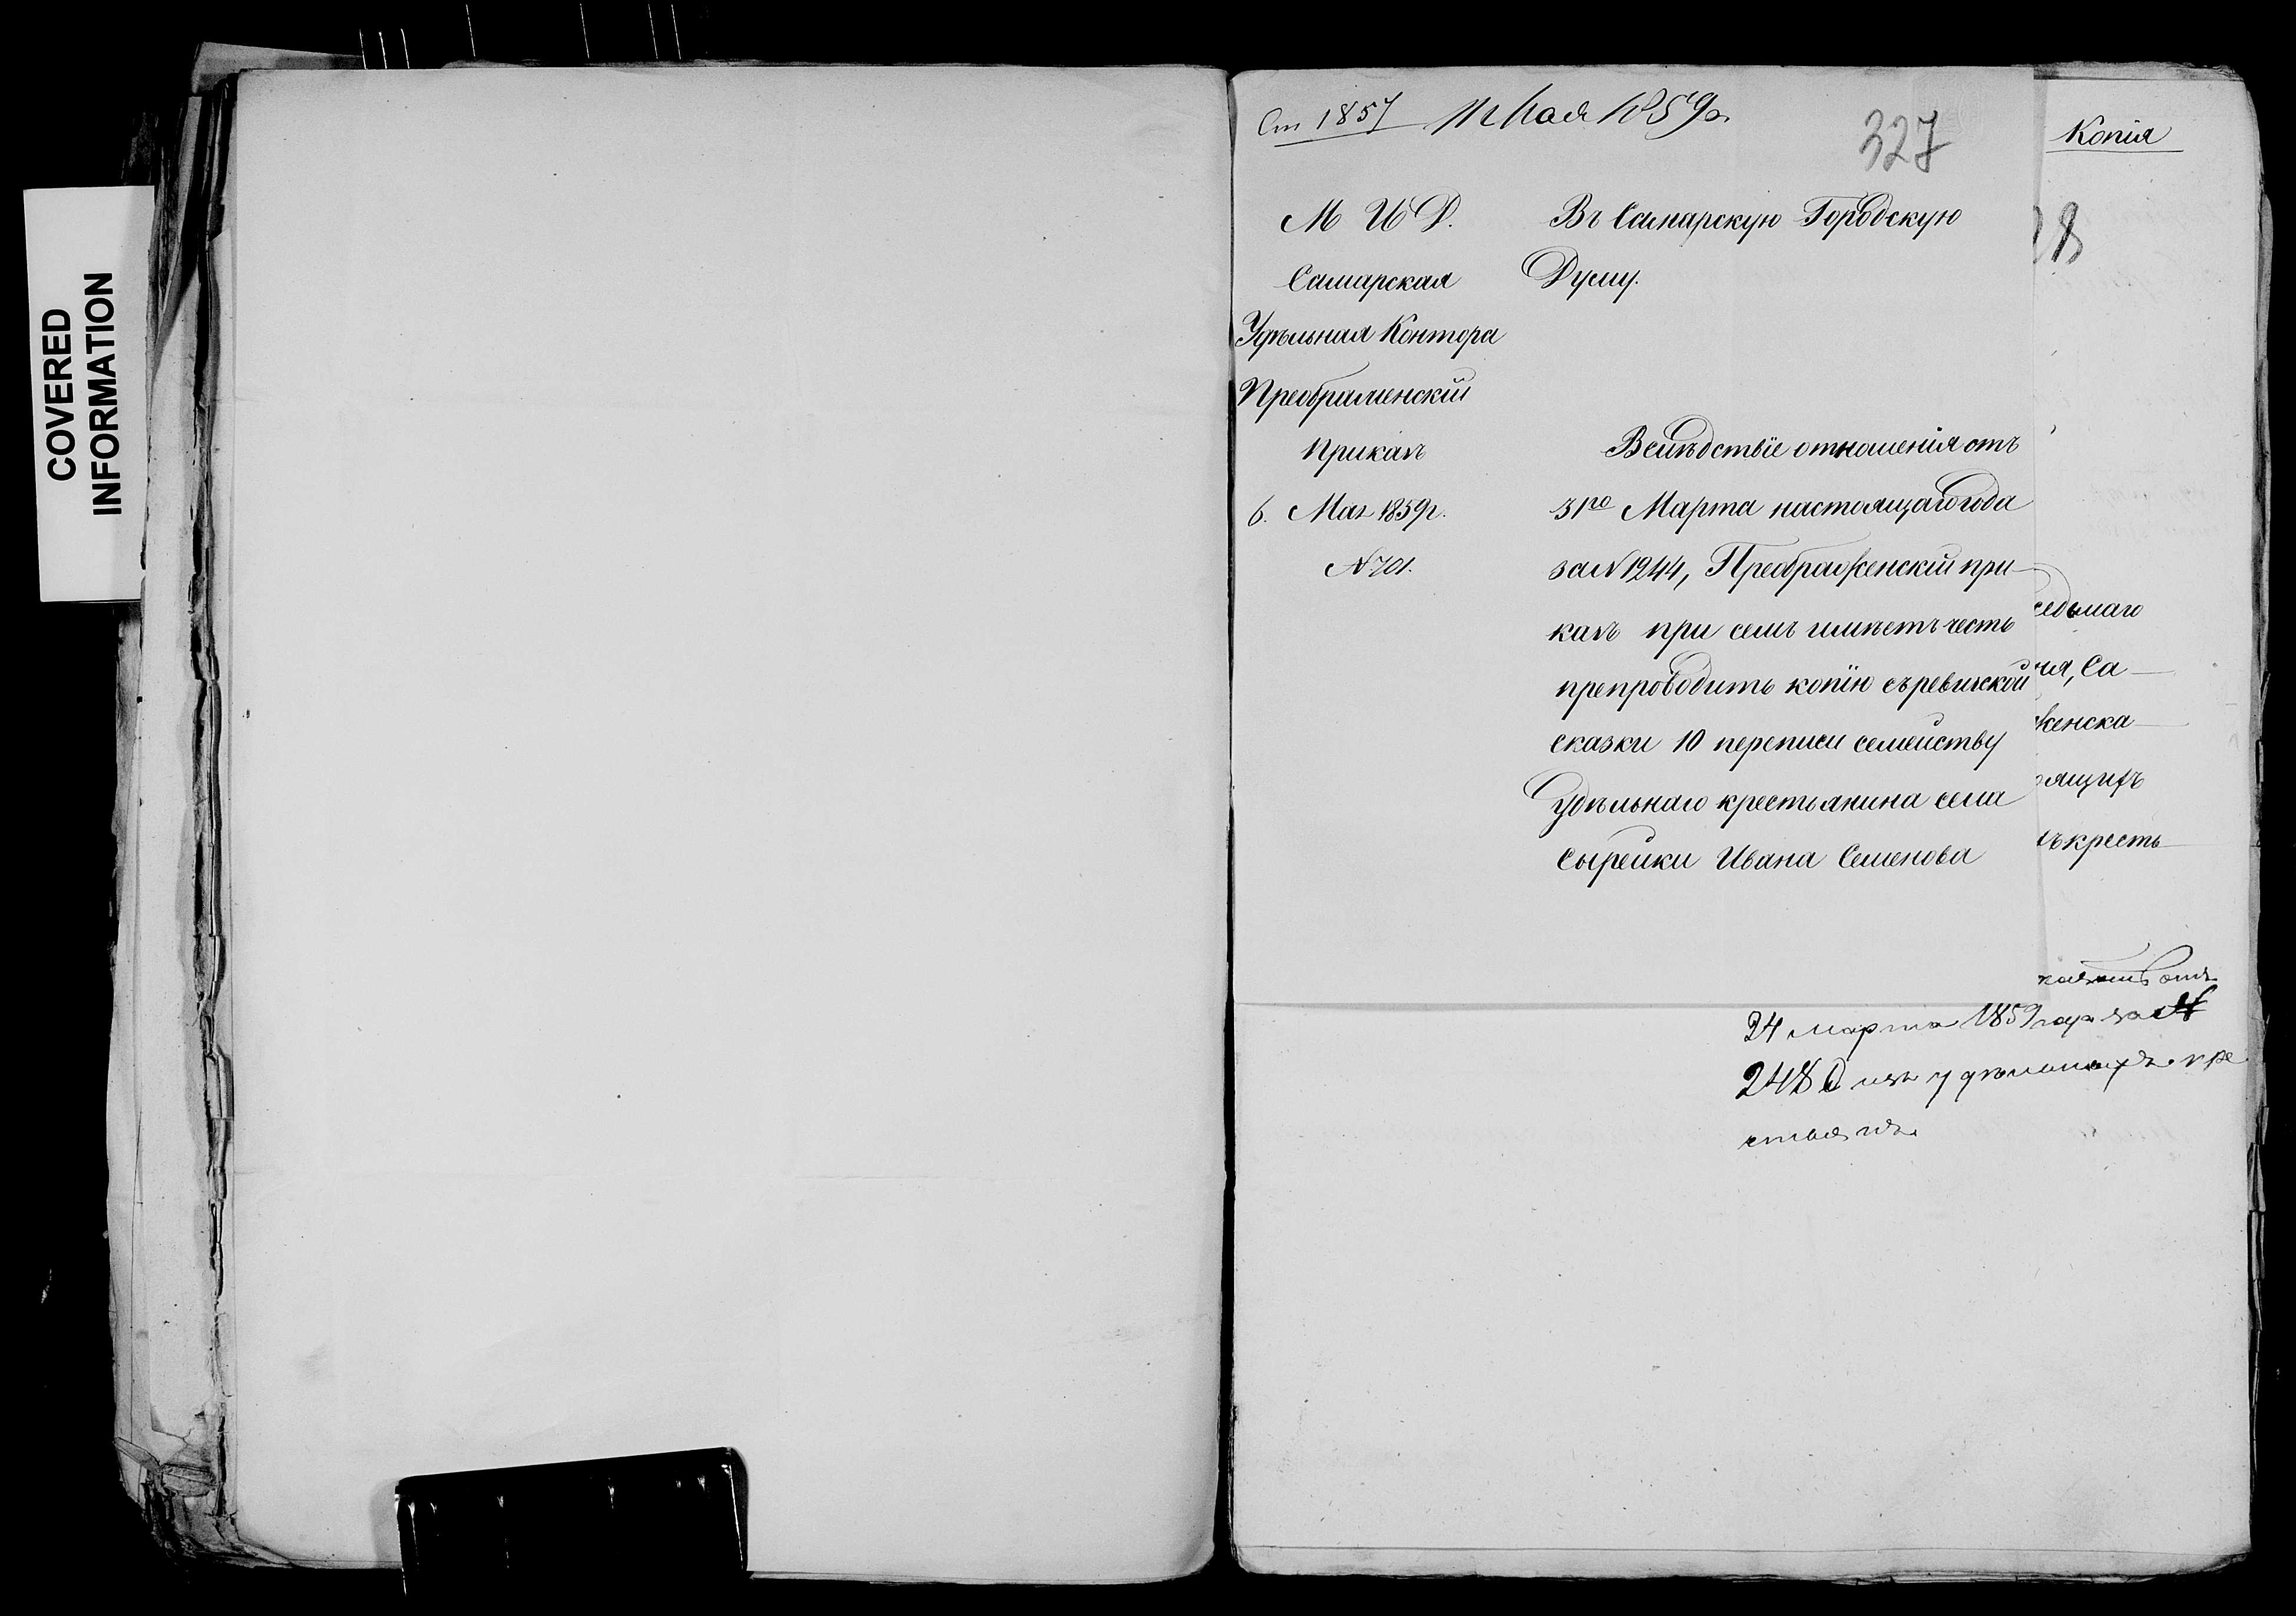 COVERED
INFORMATION
Ст 1857 11 Мая 1859 г.
327
М И Д.
Самарская
Удѣльная Контора
Преображенскій
Приказъ
6. Мая 1859 г.
N 701.
Въ Самарскую Городскую
Думу.
Вслѣдствіе отношенія отъ
31го Марта настоящаго года
за N 1244, Преображенскій при-
казъ при семъ имѣетъ честь
препроводить копію съ ревизской
сказки 10 переписи семейству
удѣльнаго крестьянина села
Сырейки Ивана Семенова
Копія
28
седьмаго
ія, Са-
женска-
ящихъ
ъ кресть-
отъ
24 марта 1859 года за N
248 изъ удѣльныхъ кре
стьянъ.